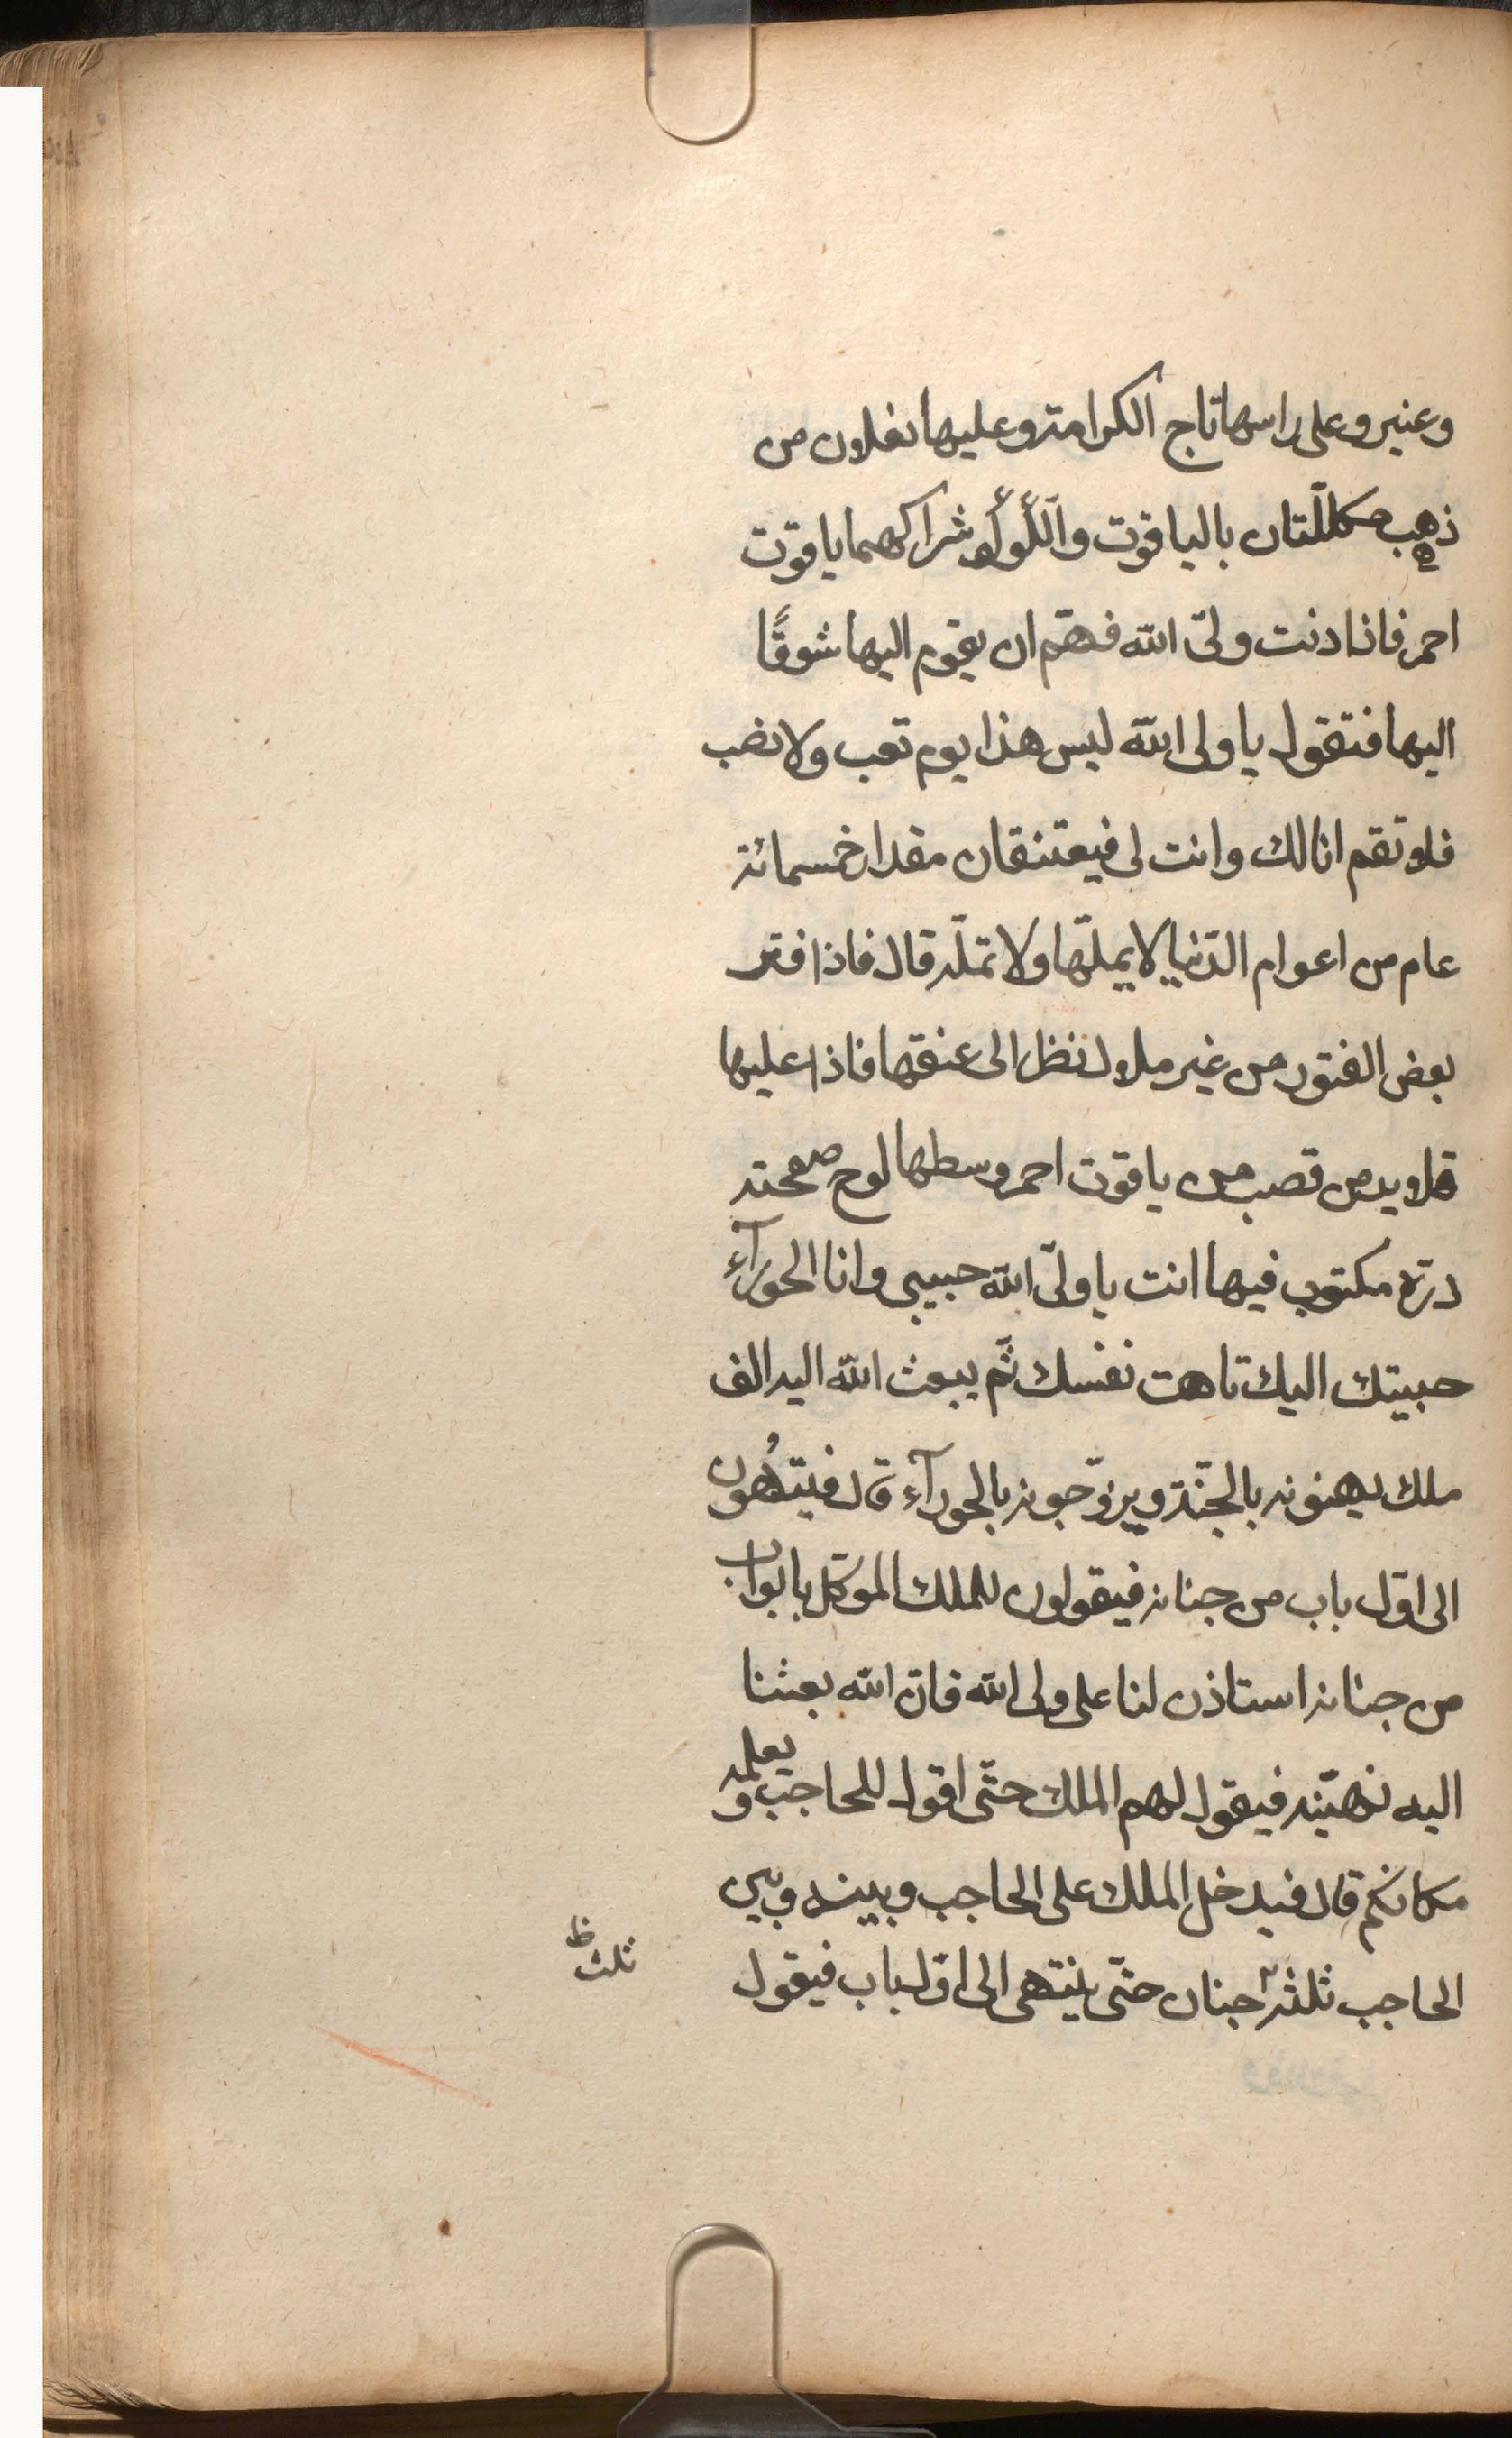 وعنبر وعلى راسها تاج الكرامة وعليها نعلان من
ذهب مكللّتان بالياقوت واللّؤلؤ شراكهما ياقوت
احمر فاذا دنت ولىّ اللّه فهمّ ان يقوم اليها شوقًا
اليها فتقول يا ولى اللّه ليس هذا يوم تعب ولا نصب
فلا تقم انا لك وانت لى فيعتنقان مقدار خمسمائة
عام من اعوام الدّنيا لا يملّها ولا تملّه قال فاذا فتر
بعض الفتور من غير ملال نظر الى عنقها فاذا عليها
قلايد من قصب من ياقوت احمر وسطها لوح صفحته
درّة مكتوب فيها انت يا ولىّ اللّه حبيبى وانا الحورآء
حبيبتك اليك تاهت نفسك ثمّ يبعث اللّه اليه الف
ملك يهنونه بالجنّة ويزوّجونه بالحورآء قال فينتهُون
الى اوّل باب من جنانه فيقولون للملك الموكّل بابواب
من جنانه استاذن لنا على ولى اللّه فانّ اللّه بعثنا
اليه نهنّيه فيقول لهم الملك حتّى اقول للحاجب ويعلمه
مكانكم قال فيدخل الملك على الحاجب وبينه وبين
الحاجب ثلثة جنان حتّى ينتهى الى اوّل باب فيقول
ثلث ظ